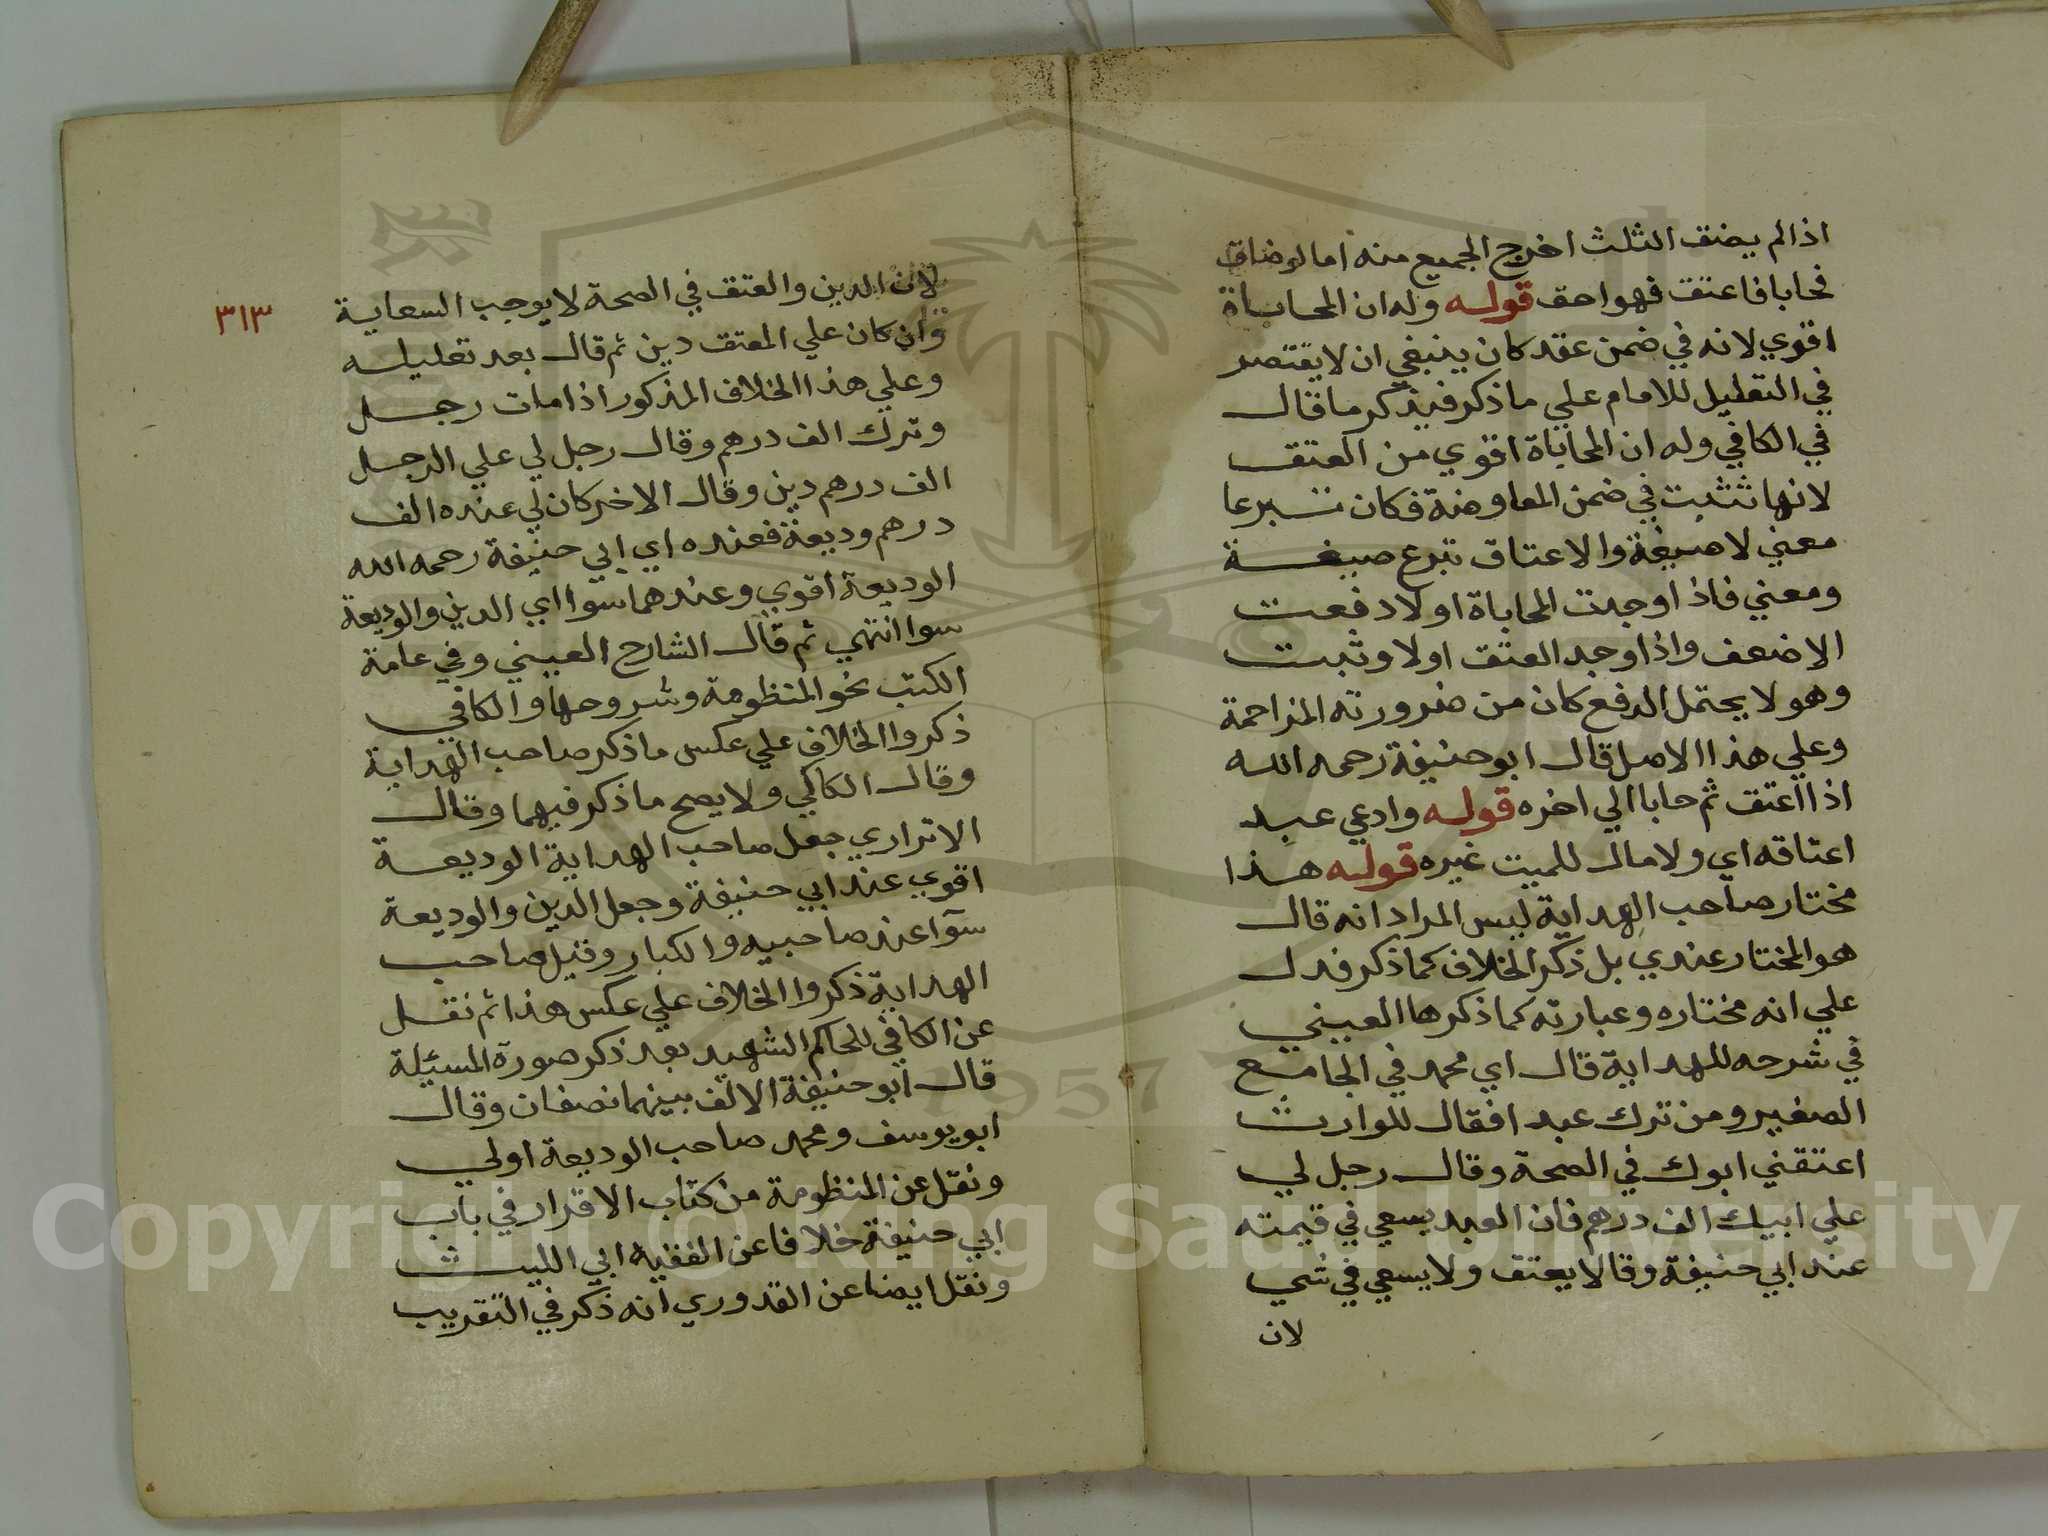 اذا لم يضق الثلث اخرج الجميع منه اما لو ضاق
فحابا فاعتق فهو احق قوله وله ان المحاباة
اقوي لانه في ضمن عقد كان ينبغي ان لا يقتصر
في التعليل للامام علي ما ذكر فيذكر ما قال
في الكافي وله ان المحاباة اقوي من العتق
لانها تثبت في ضمن المعاوضة فكان تبرعا
معني لا صيغة والاعتاق تبرع صيغة
ومعني فاذا وجدت المحاباة اولا دفعت
الاضعف واذا وجد العتق اولا وثبت
وهو لا يحتمل الدفع كان من ضرورته المزاحمة
وعلي هذا الاصل قال ابو حنيفة رحمه الله
اذا اعتق ثم حابا الي اخره قوله وادعي عبد
اعتاقه اي ولا مال للميت غيره قوله هذا
مختار صاحب الهداية ليس المراد انه قال
هو المختار عندي بل ذكر الخلاف كما ذكر فدل
علي انه مختاره وعبارته كما ذكرها العيني
في شرحه للهداية قال اي محمد في الجامع
الصغير ومن ترك عبدا فقال للوارث
اعتقني ابوك في الصحة وقال رجل لي
علي ابيك الف درهم فان العبد يسعي في قيمته
عند ابي حنيفة وقالا يعتق ولا يسعي في شي
لان
٣١٣
لان الدين والعتق في الصحة لا يوجب السعاية
وان كان علي المعتق دين ثم قال بعد تعليله
وعلي هذا الخلاف المذكور اذا مات رجل
وترك الف درهم وقال رجل لي علي الرجل
الف درهم دين وقال الاخر كان لي عنده الف
درهم وديعة فعنده اي ابي حنيفة رحمه الله
الوديعة اقوي وعندهما سوا اي الدين والوديعة
سوا انتهي ثم قال الشارح العيني وفي عامة
الكتب نحو المنظومة وشروحها والكافي
ذكروا الخلاف علي عكس ما ذكر صاحب الهداية
وقال الكاكي ولا يصح ما ذكر فيهما وقال
الاتراري جعل صاحب الهداية الوديعة
اقوي عند ابي حنيفة وجعل الدين والوديعة
سوآ عند صاحبيه والكبار وقيل صاحب
الهداية ذكروا الخلاف علي عكس هذا ثم نقل
عن الكافي للحاكم الشهيد بعد ذكر صورة المسئلة
قال ابو حنيفة الالف بينهما نصفان وقال
ابو يوسف ومحمد صاحب الوديعة اولي
ونقل عن المنظومة من كتاب الاقرار في باب
ابي حنيفة خلافا عن الفقيه ابي الليث
ونقل ايضا عن القدوري انه ذكر في التقريب
Copyright © King Saud University
1957